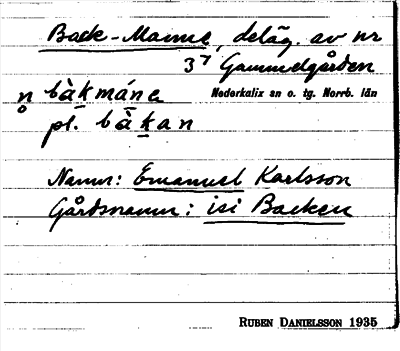 Back-Manne, deläg. av nr
37 Gammelgården
n bàkmána Nederkalix sn o. tg. Norrb. län
pl. bàkan
Namn: Emanuel Karlsson
Gårdsnamn: isi Backen
RUBEN DANIELSSON 1935